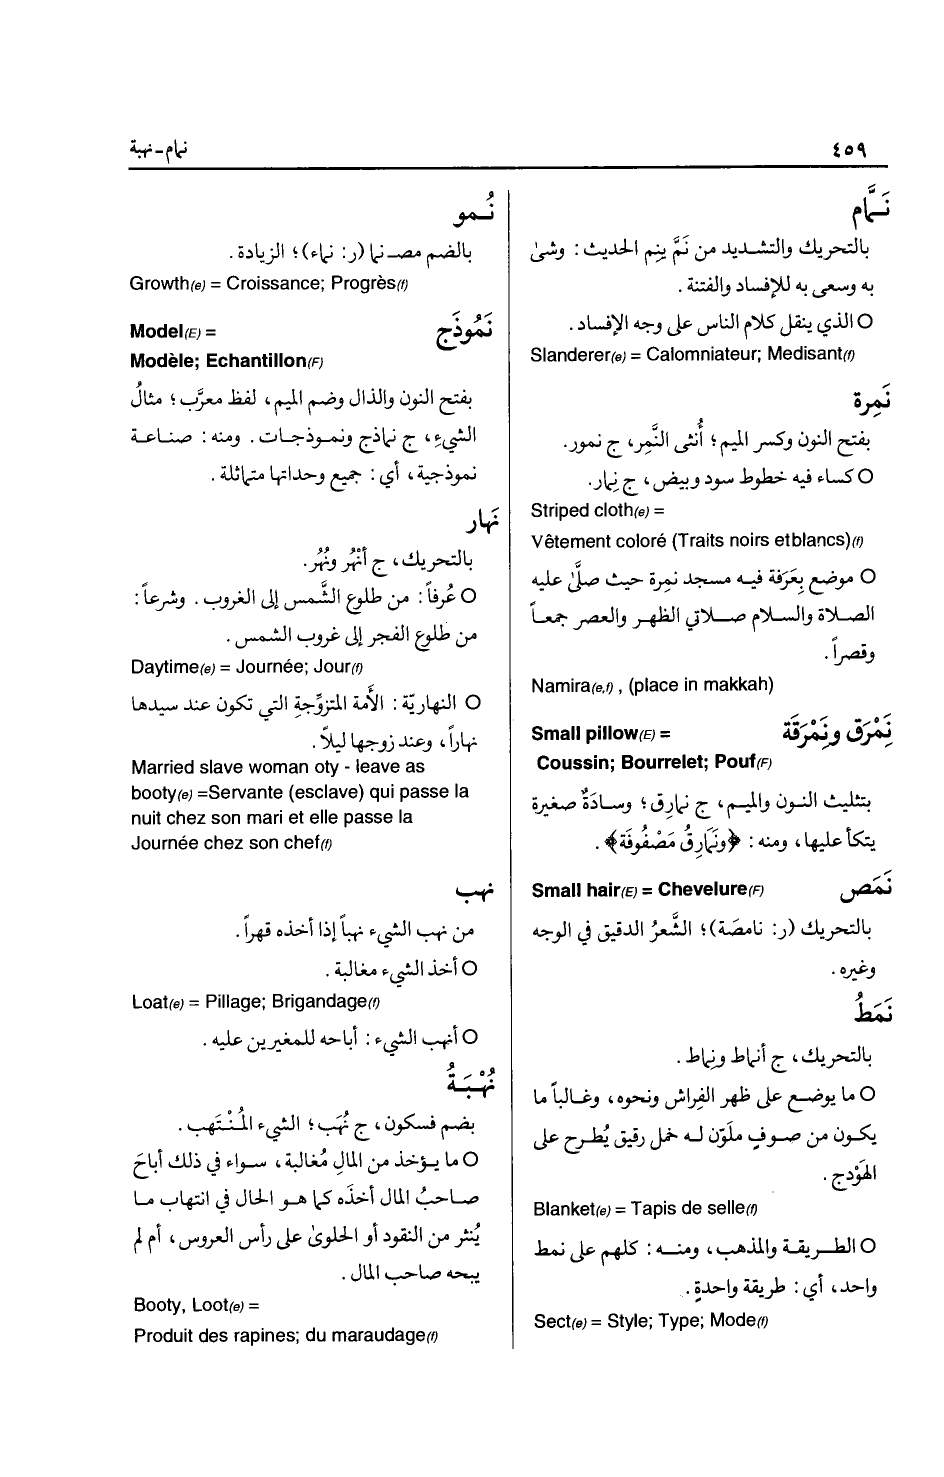 ٤٥٩
نمام-نهبة
نَمَّام
بالتحريك والتشديد من نَمَّ ينم الحديث : وشىٰ
به وسعى به للإفساد والفتنة .
O الذي ينقل كلام الناس على وجه الإفساد .
Slanderer(e) = Calomniateur; Medisant(f)
نَمِرة
بفتح النون وكسر الميم ؛ أُنثى النَّمِر، ج نمور.
O كساء فيه خطوط سود وبيض ، ج نِمار.
Striped cloth(e) =
Vêtement coloré (Traits noirs etblancs)(f)
O موضع بِعَرَفة فيه مسجد نمِرة حيث صلَّىٰ عليه
الصلاة والسلام صلاتي الظهر والعصر جمعاً
وقصراً .
Namira(e,f) , (place in makkah)
نَمْرَق ونَمْرَقَة
Small pillow(E) =
Coussin; Bourrelet; Pouf(F)
بتثليث النون والميم، ج نمارق ؛ وسادَةٌ صغيرة
يتكأ عليها ، ومنه : ﴿ونَمَارِقُ مَصْفُوفَة﴾ .
نَمَص
Small hair(E) = Chevelure(F)
بالتحريك (ر: نامصَة)؛ الشَّعرُ الدقيق في الوجه
وغيره .
نَمَطُ
بالتحريك ، ج أنماط ونِماط .
O ما يوضع على ظهر الفِراش ونحوه ، وغالباً ما
يكون من صوفٍ ملَوّن له خمل رقيق يُطرح على
الهَوْدج .
Blanket(e) = Tapis de selle(f)
O الطريقة والمذهب، ومنه : كلهم على نمط
واحد، أي : طريقة واحدةٍ .
Sect(e) = Style; Type; Mode(f)
نُمو
بالضم مصـ نما (ر: نماء)؛ الزيادة .
Growth(e) = Croissance; Progrès(f)
نَمُوذَج
Model(E) =
Modèle; Echantillon(F)
بفتح النون والذال وضم الميم ، لفظ معرَّب ؛ مثالُ
الشيءِ ، ج نماذج ونموذجات . ومنه : صناعة
نموذجية ، أي : جميع وحداتها متماثلة .
نَهار
بالتحريك ، ج أَنْهُر ونُهُر.
O عُرفاً : من طلوع الشَّمس إلى الغروب . وشرعاً :
من طلوع الفجر إلى غروب الشمس .
Daytime(e) = Journée; Jour(f)
O النهاريّة : الأَمة المتزوِّجةِ التي تكون عند سيدها
نهاراً ، وعند زوجها ليلاً .
Married slave woman oty - leave as
booty(e) =Servante (esclave) qui passe la
nuit chez son mari et elle passe la
Journée chez son chef(f)
نهب
من نهب الشيء نهباً إذا أخذه قهراً .
O أخذ الشيء مغالبة .
Loat(e) = Pillage; Brigandage(f)
O أنهب الشيء : أباحه للمغيرين عليه .
نُهْبَةُ
بضم فسكون ، ج نُهَب ؛ الشيء المُنْتَهب .
O ما يؤخذ من المالِ مُغالبة ، سواء في ذلك أباحَ
صاحبُ المال أخذَه كما هو الحال في انتهاب ما
يُنثر من النقود أو الحلوىٰ على رأس العروس ، أم لم
يبحه صاحب المال .
Booty, Loot(e) =
Produit des rapines; du maraudage(f)